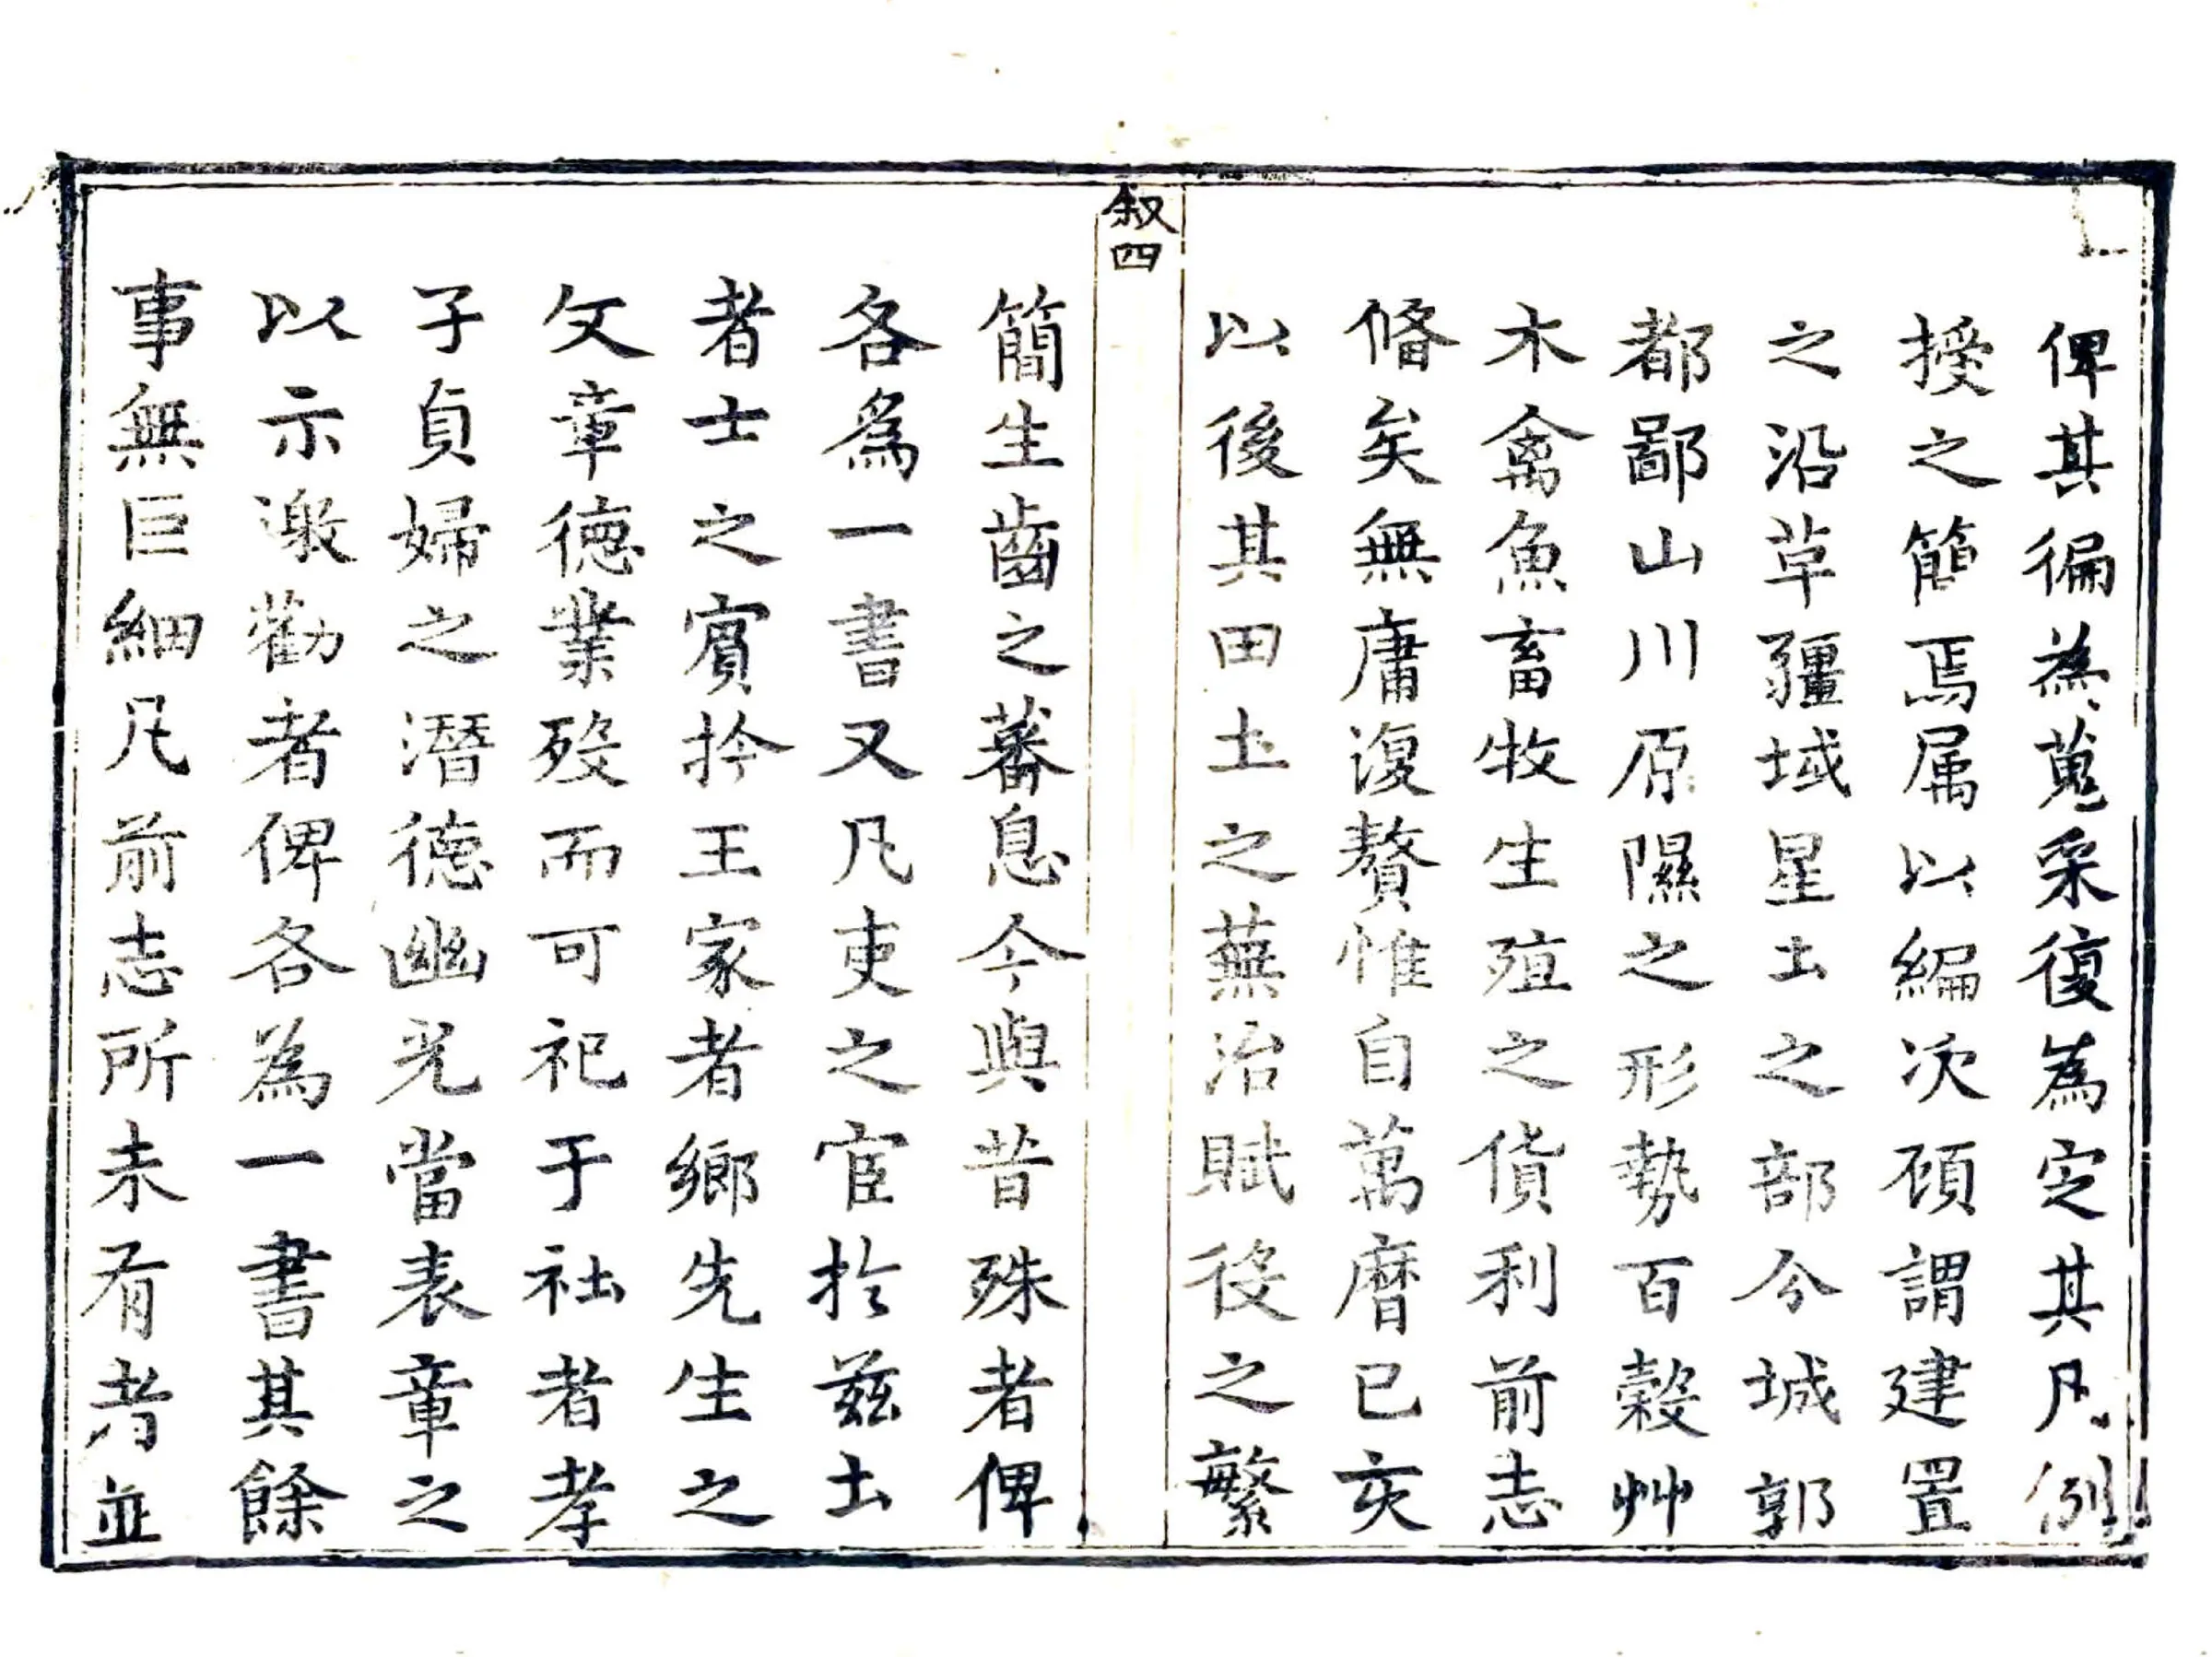 俾其徧為蒐采復為定其凡例
授之簡焉属以編次頋謂建置
之沿草疆域星土之部今城郭
都鄙山川原隰之形勢百糓艸
木禽魚畜牧生殖之貨利前志
脩矣無庸復贅惟自萬曆已亥
以後其田土之蕪治賦役之繁
叙四
簡生齒之蕃息今與昔殊者俾
各為一書又凡吏之宦於茲土
者士之賓扵王家者鄉先生之
文章德業歿而可祀于社者孝
子貞婦之潛德幽光當表章之
以示激勸者俾各為一書其餘
事無巨細凡前志所未有者並